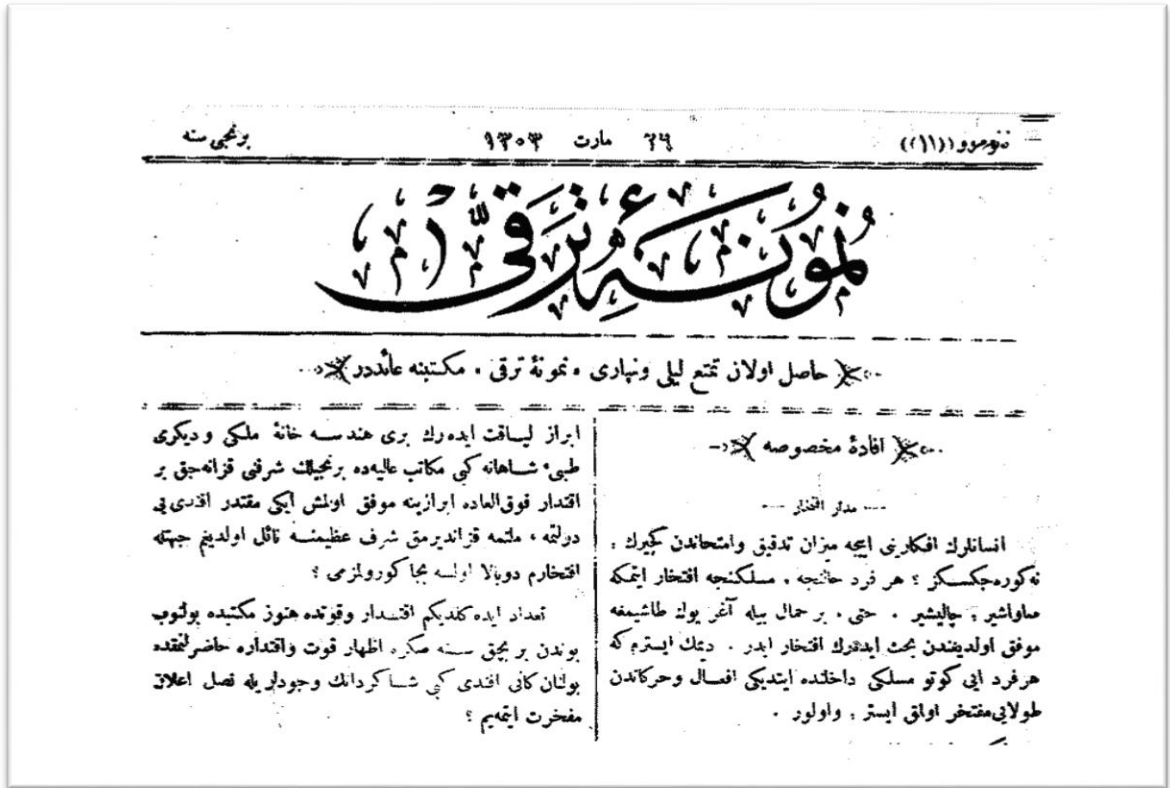 نومرو (١١) ٢٦ مارت ١٣٠٣ برنجی سنه
نمونۀ ترقی
حاصل اولان تمتع لیلی ونهاری ، نمونۀ ترقی ، مکتبنه عائددر
افادۀ مخصوصه
مدار افتخار
انسانلرك افکارینی اییجه میزان تدقیق وامتحاندن کچیرك ،
نه کوره جکسکز ؟ هر فرد حالنجه ، مسلکنجه افتخار ایتمکه
صاواشیر ، چالیشیر . حتی ، بر حمال بیله آغر یوك طاشیمغه
موفق اولدیغندن بحث ایدەرك افتخار ایدر . دیمك ایسترم که
هر فرد ایی کوتو مسلکی داخلنده ایتدیکی افعال وحرکاتدن
طولایی مفتخر اولمق ایستر ، واولور .
ابراز لیاقت ایدەرك بری هندسه خانۀ ملکی و دیکری
طبیۀ شاهانه کبی مکاتب عالیه ده برنجیلك شرفنی قزانه جق بر
اقتدار فوق العاده ابرازینه موفق اولمش ایکی مقتدر افندی یی
دولتمه ، ملتمه قزاندیرمق شرف عظیمنه نائل اولدیغم جهتله
افتخارم دوبالا اولسه بجا کورولمزمی ؟
تعداد ایده کلدیکم اقتدار وقوتده هنوز مکتبده بولنوب
بوندن بر بچق سنه صکره اظهار قوت واقتداره حاضرلنمقده
بولنان کانی افندی کبی شاکردانك وجودلریله نصل اعلان
مفخرت ایتمه یم ؟